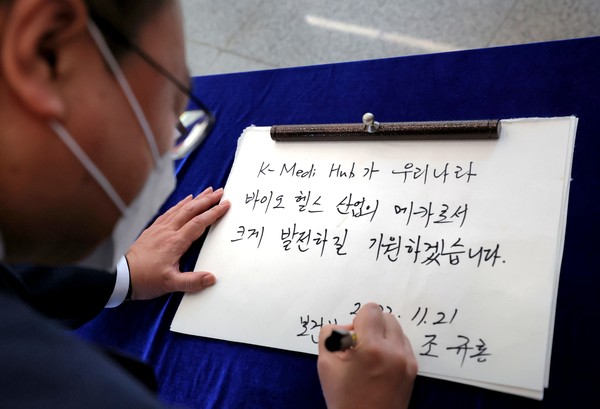 K-Medi Hub가 우리나라
바이오 헬스 산업의 메카로서
크게 발전하길 기원하겠습니다.
11.21
조규홍